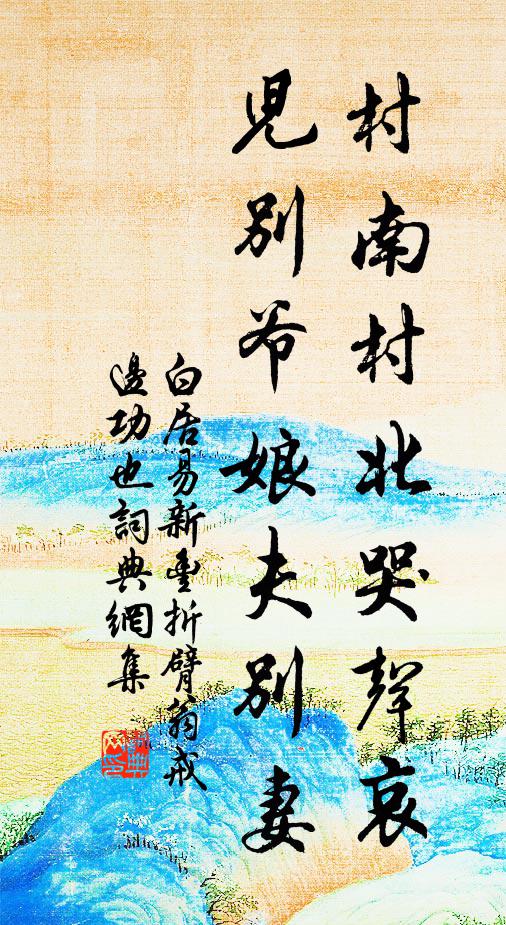 村南村北哭聲哀
兒別爷娘夫別妻
白居易新豐折臂翁戒
邊功也詞典網集